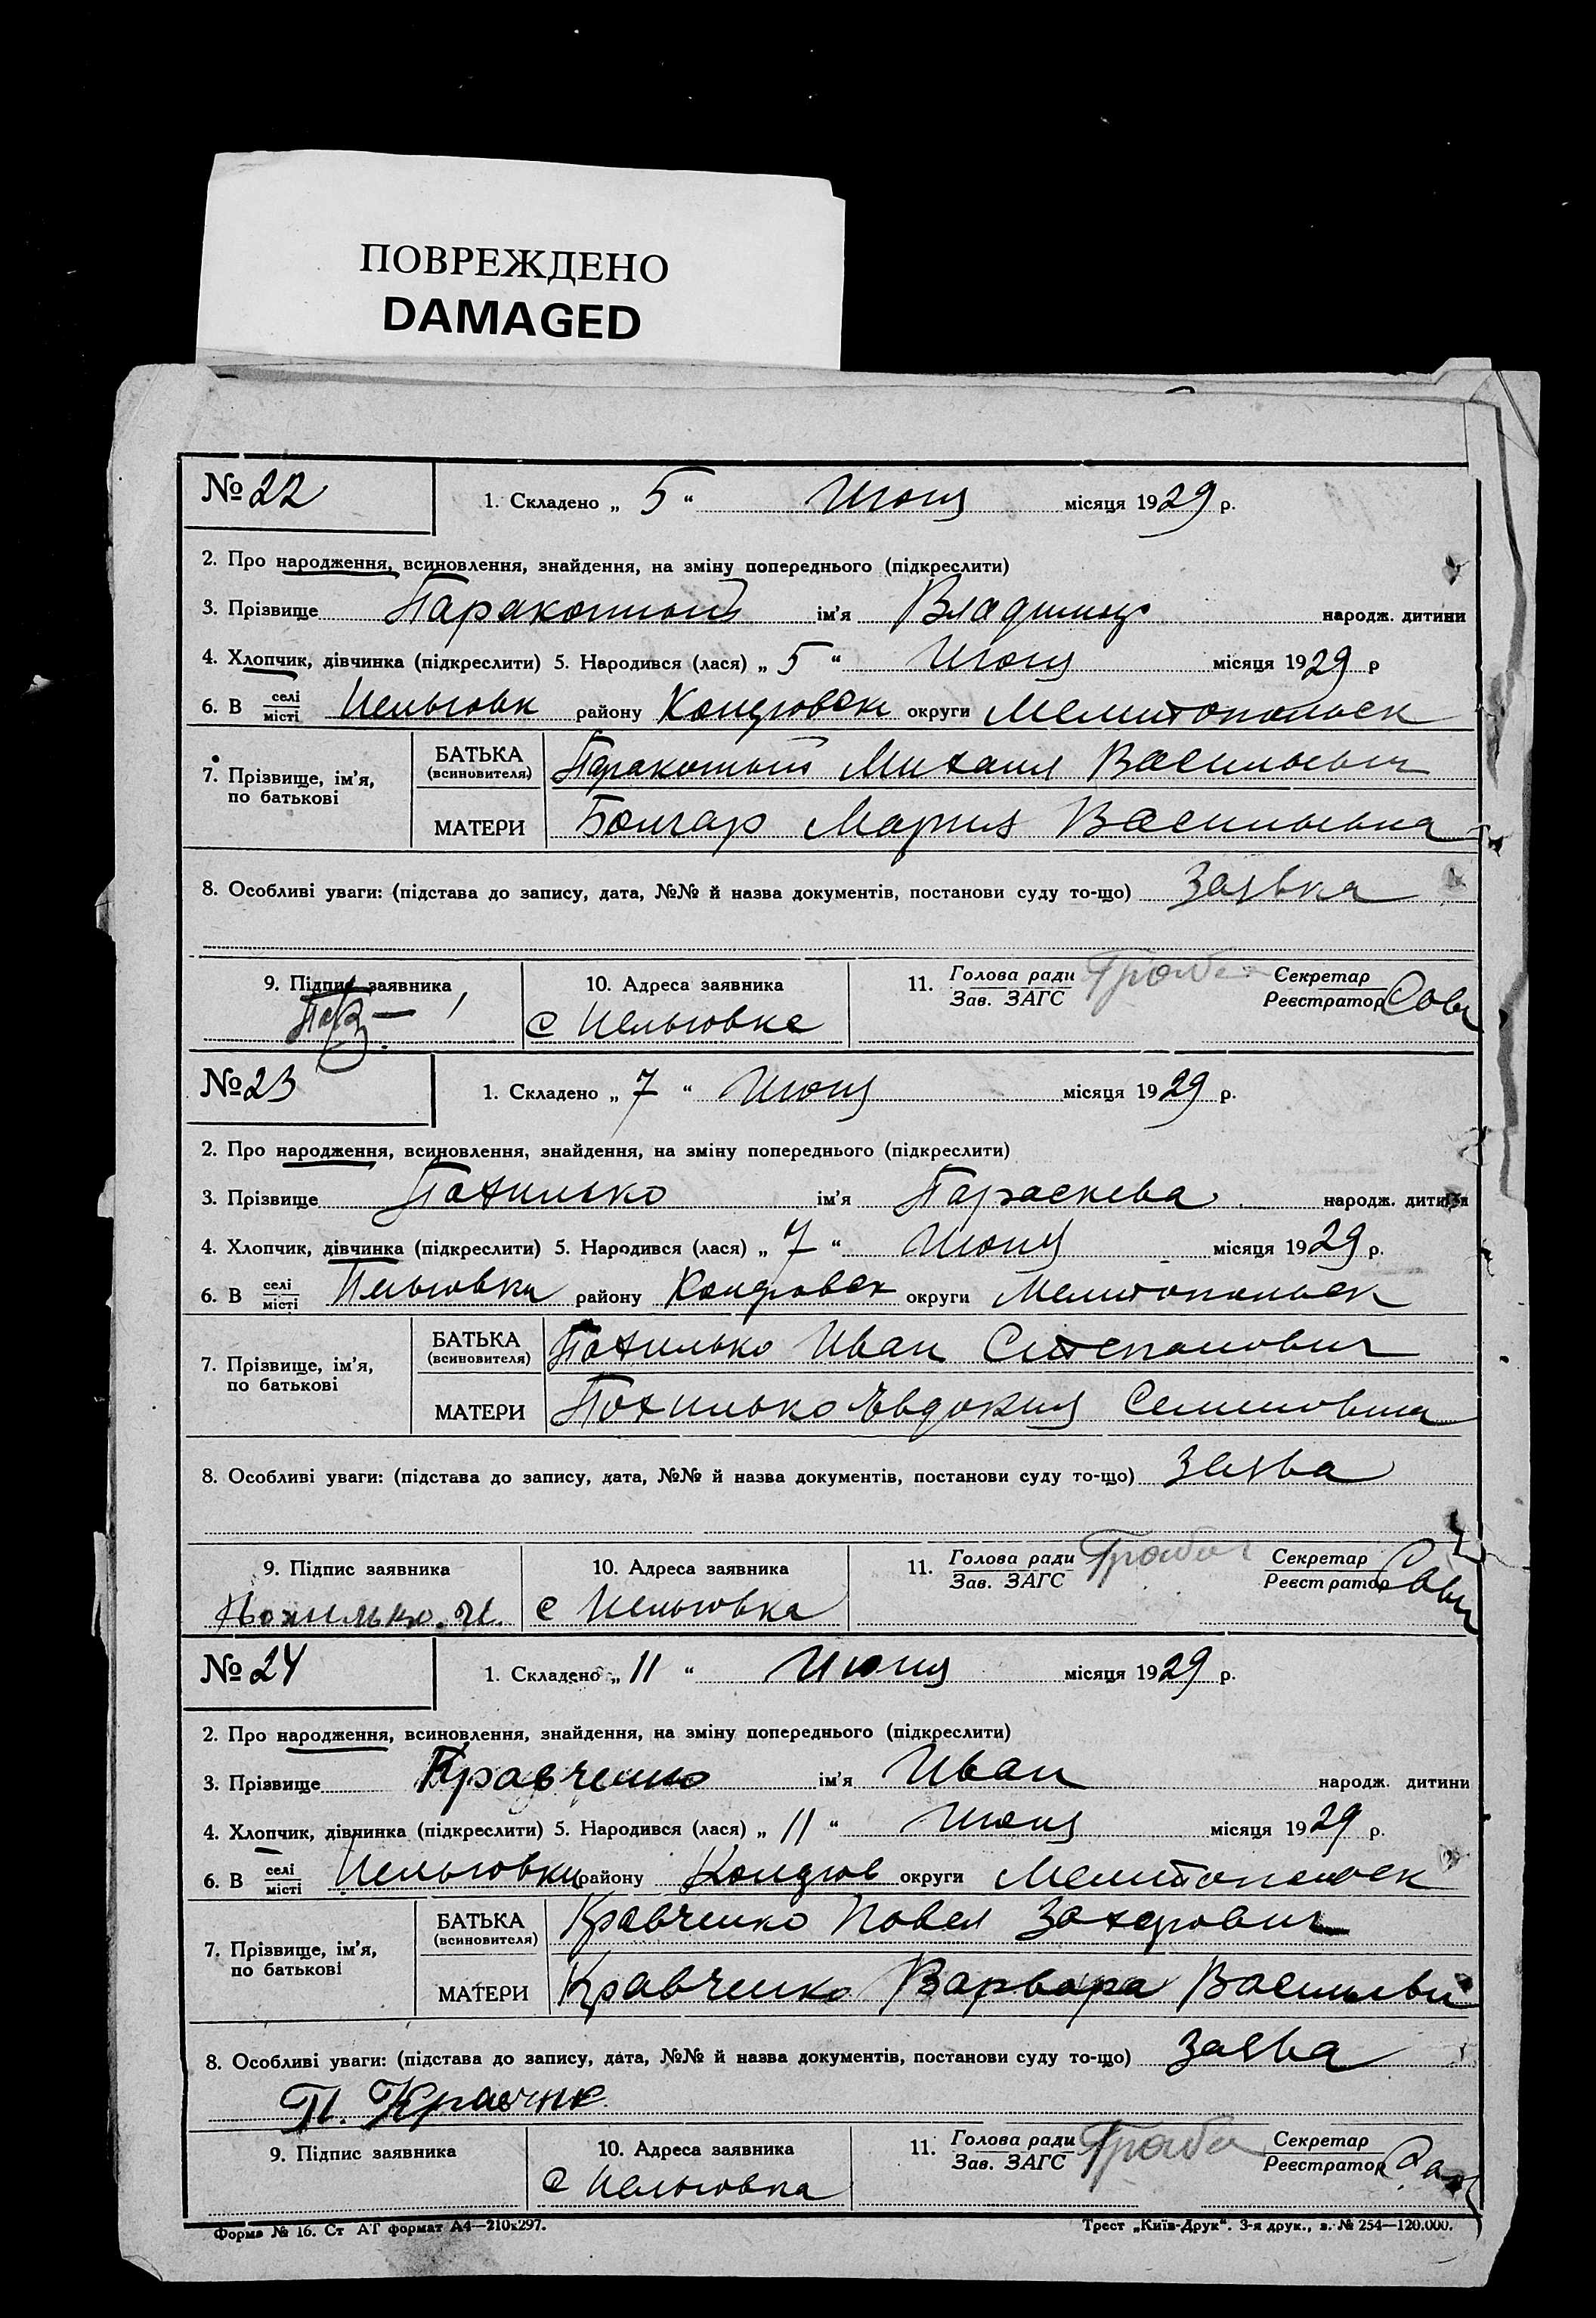 ПОВРЕЖДЕНО
DAMAGED
№ 22
1. Складено „ 5 “ Июня місяця 1929 р.
2. Про народження, всиновлення, знайдення, на зміну попереднього (підкреслити)
3. Прізвище ім’я Владимир народж. дитини
4. Хлопчик, дівчинка (підкреслити) 5. Народився (лася) „ 5 “ Июня місяця 1929 р
6. В селі місті району округи Мелитопольск
7. Прізвище, ім’я, по батькові
БАТЬКА (всиновителя) Михаил Васильевич
МАТЕРИ Болгар Мария Васильевна
8. Особливі уваги: (підстава до запису, дата, №№ й назва документів, постанови суду то-що) Заявка
9. Підпис заявника
10. Адреса заявника
с
11. Голова ради Зав. ЗАГС Секретар Реєстратор
№ 23
1. Складено „ 7 “ Июня місяця 1929 р.
2. Про народження, всиновлення, знайдення, на зміну попереднього (підкреслити)
3. Прізвище Похилько ім’я Параскева народж. дитини
4. Хлопчик, дівчинка (підкреслити) 5. Народився (лася) „ 7 “ Июня місяця 1929 р.
6. В селі місті району округи Мелитопольск
7. Прізвище, ім’я, по батькові
БАТЬКА (всиновителя) Похилько Иван Степанович
МАТЕРИ Похилько Евдокия Семеновна
8. Особливі уваги: (підстава до запису, дата, №№ й назва документів, постанови суду то-що) Заява
9. Підпис заявника
Похилько. И.
10. Адреса заявника
с
11. Голова ради Зав. ЗАГС Секретар Реєстратор
№ 24
1. Складено „ 11 “ Июня місяця 1929 р.
2. Про народження, всиновлення, знайдення, на зміну попереднього (підкреслити)
3. Прізвище Кравченко ім’я Иван народж. дитини
4. Хлопчик, дівчинка (підкреслити) 5. Народився (лася) „ 11 “ Июня місяця 1929 р.
6. В селі місті району округи Мелитопольск
7. Прізвище, ім’я, по батькові
БАТЬКА (всиновителя) Кравченко Павел Захарович
МАТЕРИ Кравченко Варвара
8. Особливі уваги: (підстава до запису, дата, №№ й назва документів, постанови суду то-що) Заява
П.
9. Підпис заявника
10. Адреса заявника
с
11. Голова ради Зав. ЗАГС Секретар Реєстратор
Форма № 16. Ст АТ формат А4—210x297.
Трест „Київ-Друк“. 3-я друк., з. № 254—120.000.